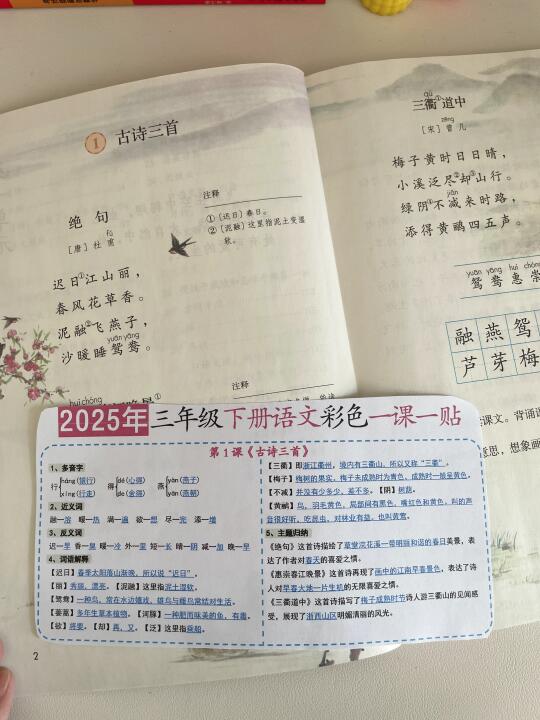 1 古诗三首
绝句
fǔ
[唐] 杜甫
迟日①江山丽，
春风花草香。
泥融②飞燕子，
yuān yāng
沙暖睡鸳鸯。
注释
①〔迟日〕春日。
②〔泥融〕这里指泥土变湿
软。
huì chóng
注释
2
qú
三衢①道中
zēng
[宋] 曾几
梅子黄时日日晴，
小溪泛尽②却③山行。
jiǎn
绿阴④不减来时路，
添得黄鹂四五声。
yuān yāng huì chóng
鸳鸯惠崇
融燕鸳
芦芽梅
课文。背诵
意思，想象画
2025年三年级下册语文彩色一课一贴
第1课《古诗三首》
1、多音字
行 háng(银行) 得 dé(心得) 燕 yàn(燕子)
xíng(行走) dé(舍得) yān(燕朝)
2、近义词
融—溶 暖—热 满—遍 欲—想 尽—完 添—增
3、反义词
迟—早 香—臭 暖—冷 外—里 短—长 晴—阴 减—加 晚—早
4、词语解释
【迟日】春季太阳落山渐晚，所以说“迟日”。
【丽】秀丽，漂亮。【泥融】这里指泥土湿软。
【鸳鸯】一种鸟，常在水边嬉戏，雄鸟与雌鸟常结对生活。
【蒌蒿】多年生草本植物。【河豚】一种肥而味美的鱼，有毒。
【欲】将要。【却】再，又。【泛】这里指乘船。
【三衢】即浙江衢州，境内有三衢山，所以又称“三衢”。
【梅子】梅树的果实。梅子未成熟时为青色，成熟时一般呈黄色。
【不减】并没有少多少，差不多。【阴】树荫。
【黄鹂】鸟，羽毛黄色，局部间有黑色，嘴红色和黄色，叫的声
音很好听，吃昆虫，对林业有益，也叫黄莺。
5、主题归纳
《绝句》这首诗描绘了草堂浣花溪一带明丽和谐的春日美景，表
达了作者对春天的喜爱之情。
《惠崇春江晚景》这首诗再现了画中的江南早春景色，表达了诗
人对早春大地一片生机的无限喜爱之情。
《三衢道中》这首诗描写了梅子成熟时节诗人游三衢山的见闻感
受，展现了浙西山区明媚清丽的风光。